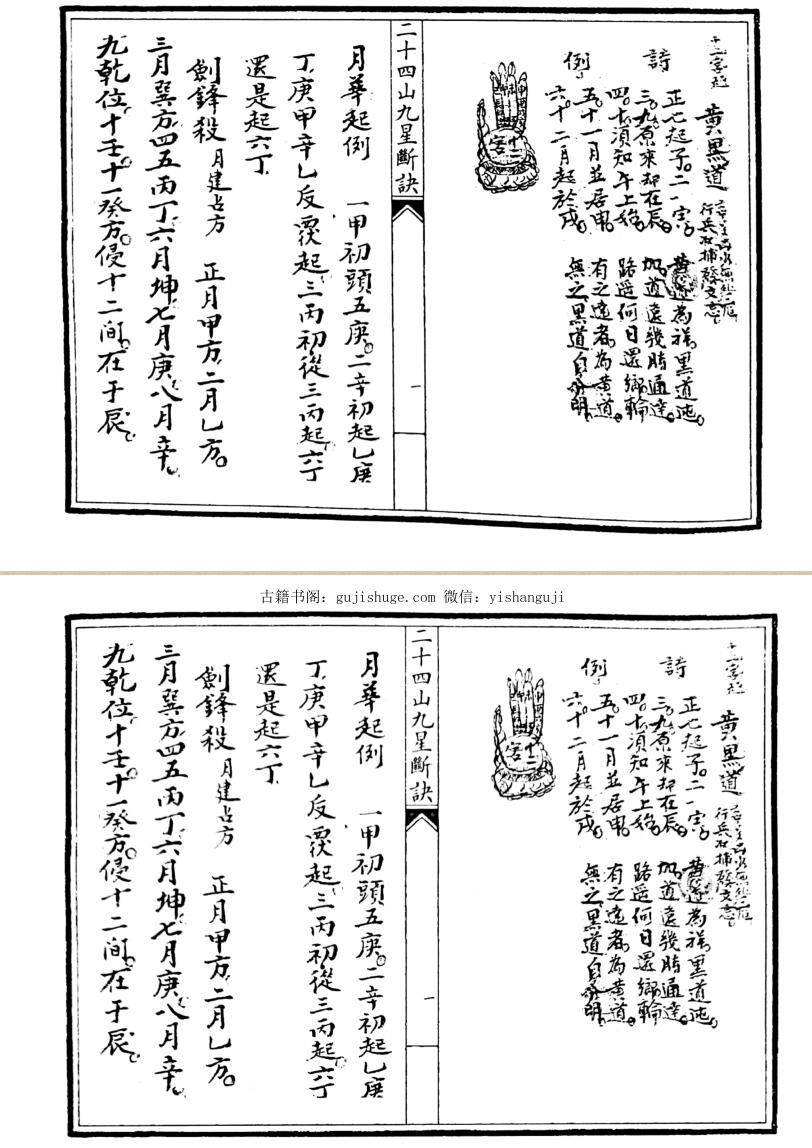 黃黑道
詩
正七起子。二八
三九原來却在辰
四十須知午上始
五十一月並居申
六十二月起於戌
例
黃道為祥黑道
加道遠幾時通達
路遥何日還鄉輪
有之遠者為黃道
無之黑道自分明
十二宮
二十四山九星斷訣
一
月華起例 一甲初頭五庚。二辛初起乙庚
丁庚甲辛乙反覆起三丙初從三丙起六丁
還是起六丁
劍鋒殺 月建占方 正月甲方二月乙方。
三月巽方四五丙丁六月坤七月庚八月辛。
九乾位十壬十一癸方侵十二間在于辰
古籍书阁：gujishuge.com 微信：yishanguji
黃黑道
詩
正七起子。二八
三九原來却在辰
四十須知午上始
五十一月並居申
六十二月起於戌
例
黃道為祥黑道
加道遠幾時通達
路遥何日還鄉輪
有之遠者為黃道
無之黑道自分明
十二宮
二十四山九星斷訣
一
月華起例 一甲初頭五庚。二辛初起乙庚
丁庚甲辛乙反覆起三丙初從三丙起六丁
還是起六丁
劍鋒殺 月建占方 正月甲方二月乙方。
三月巽方四五丙丁六月坤七月庚八月辛。
九乾位十壬十一癸方侵十二間在于辰